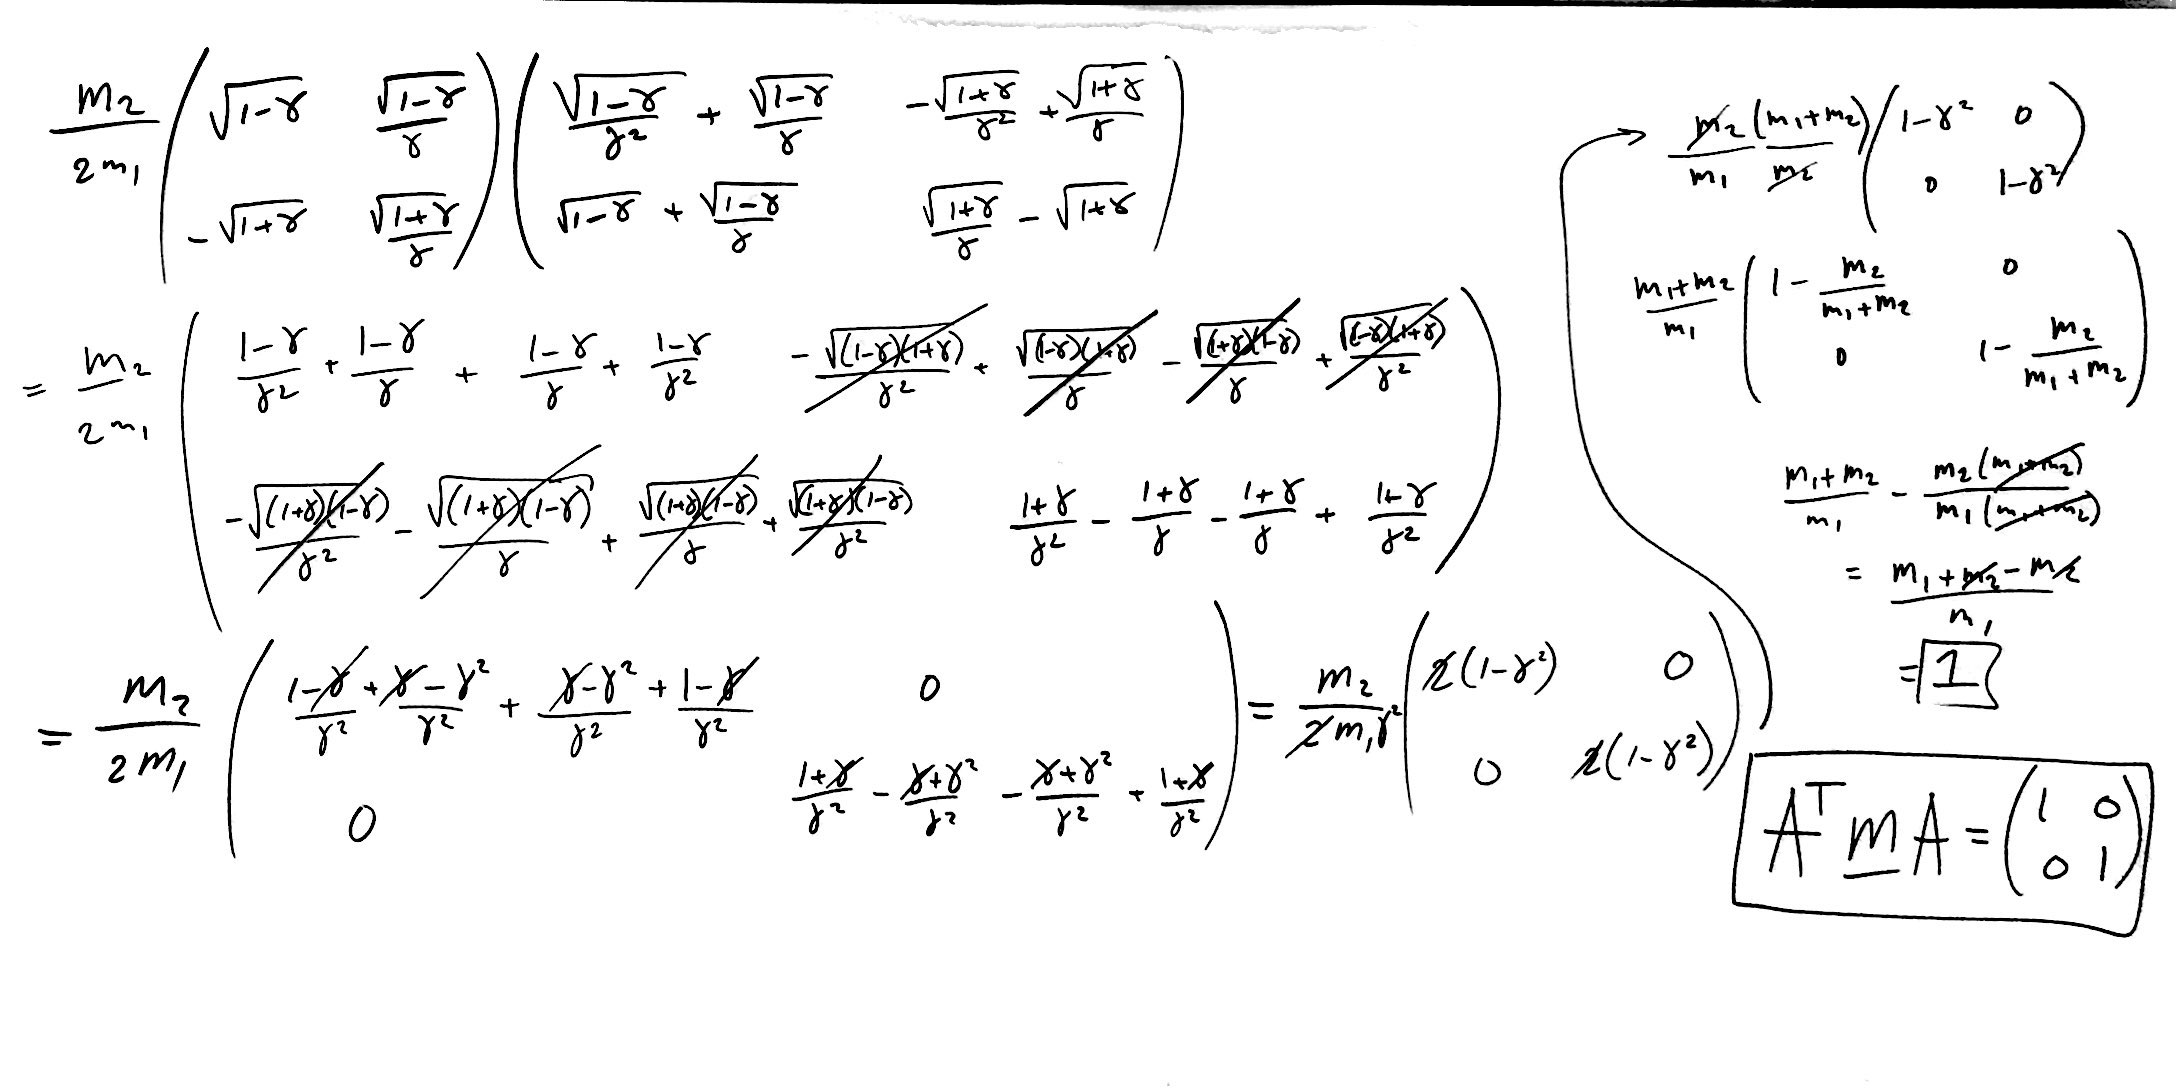 $\frac{m_2}{2m_1}\begin{pmatrix}\sqrt{1-\gamma} & \frac{\sqrt{1-\gamma}}{\gamma}\\ -\sqrt{1+\gamma} & \frac{\sqrt{1+\gamma}}{\gamma}\end{pmatrix}\begin{pmatrix}\frac{\sqrt{1-\gamma}}{\gamma^2}+\frac{\sqrt{1-\gamma}}{\gamma} & -\frac{\sqrt{1+\gamma}}{\gamma^2}+\frac{\sqrt{1+\gamma}}{\gamma}\\ \sqrt{1-\gamma}+\frac{\sqrt{1-\gamma}}{\gamma} & \frac{\sqrt{1+\gamma}}{\gamma}-\sqrt{1+\gamma}\end{pmatrix}$
$=\frac{m_2}{2m_1}\begin{pmatrix}\frac{1-\gamma}{\gamma^2}+\frac{1-\gamma}{\gamma}+\frac{1-\gamma}{\gamma}+\frac{1-\gamma}{\gamma^2} & -\frac{\sqrt{(1-\gamma)(1+\gamma)}}{\gamma^2}+\frac{\sqrt{(1-\gamma)(1+\gamma)}}{\gamma}-\frac{\sqrt{(1+\gamma)(1-\gamma)}}{\gamma}+\frac{\sqrt{(1-\gamma)(1+\gamma)}}{\gamma^2}\\ -\frac{\sqrt{(1+\gamma)(1-\gamma)}}{\gamma^2}-\frac{\sqrt{(1+\gamma)(1-\gamma)}}{\gamma}+\frac{\sqrt{(1+\gamma)(1-\gamma)}}{\gamma}+\frac{\sqrt{(1+\gamma)(1-\gamma)}}{\gamma^2} & \frac{1+\gamma}{\gamma^2}-\frac{1+\gamma}{\gamma}-\frac{1+\gamma}{\gamma}+\frac{1+\gamma}{\gamma^2}\end{pmatrix}$
$=\frac{m_2}{2m_1}\begin{pmatrix}\frac{1-\gamma}{\gamma^2}+\frac{\gamma-\gamma^2}{\gamma^2}+\frac{\gamma-\gamma^2}{\gamma^2}+\frac{1-\gamma}{\gamma^2} & 0\\ 0 & \frac{1+\gamma}{\gamma^2}-\frac{\gamma+\gamma^2}{\gamma^2}-\frac{\gamma+\gamma^2}{\gamma^2}+\frac{1+\gamma}{\gamma^2}\end{pmatrix}=\frac{m_2}{2m_1\gamma^2}\begin{pmatrix}2(1-\gamma^2) & 0\\ 0 & 2(1-\gamma^2)\end{pmatrix}$
$\rightarrow\frac{m_2}{m_1}\frac{(m_1+m_2)}{m_2}\begin{pmatrix}1-\gamma^2 & 0\\ 0 & 1-\gamma^2\end{pmatrix}$
$\frac{m_1+m_2}{m_1}\begin{pmatrix}1-\frac{m_2}{m_1+m_2} & 0\\ 0 & 1-\frac{m_2}{m_1+m_2}\end{pmatrix}$
$\frac{m_1+m_2}{m_1}-\frac{m_2(m_1+m_2)}{m_1(m_1+m_2)}$
$=\frac{m_1+m_2-m_2}{m_1}$
$=\boxed{1}$
$\boxed{A^T\underline{m}A=\begin{pmatrix}1 & 0\\ 0 & 1\end{pmatrix}}$